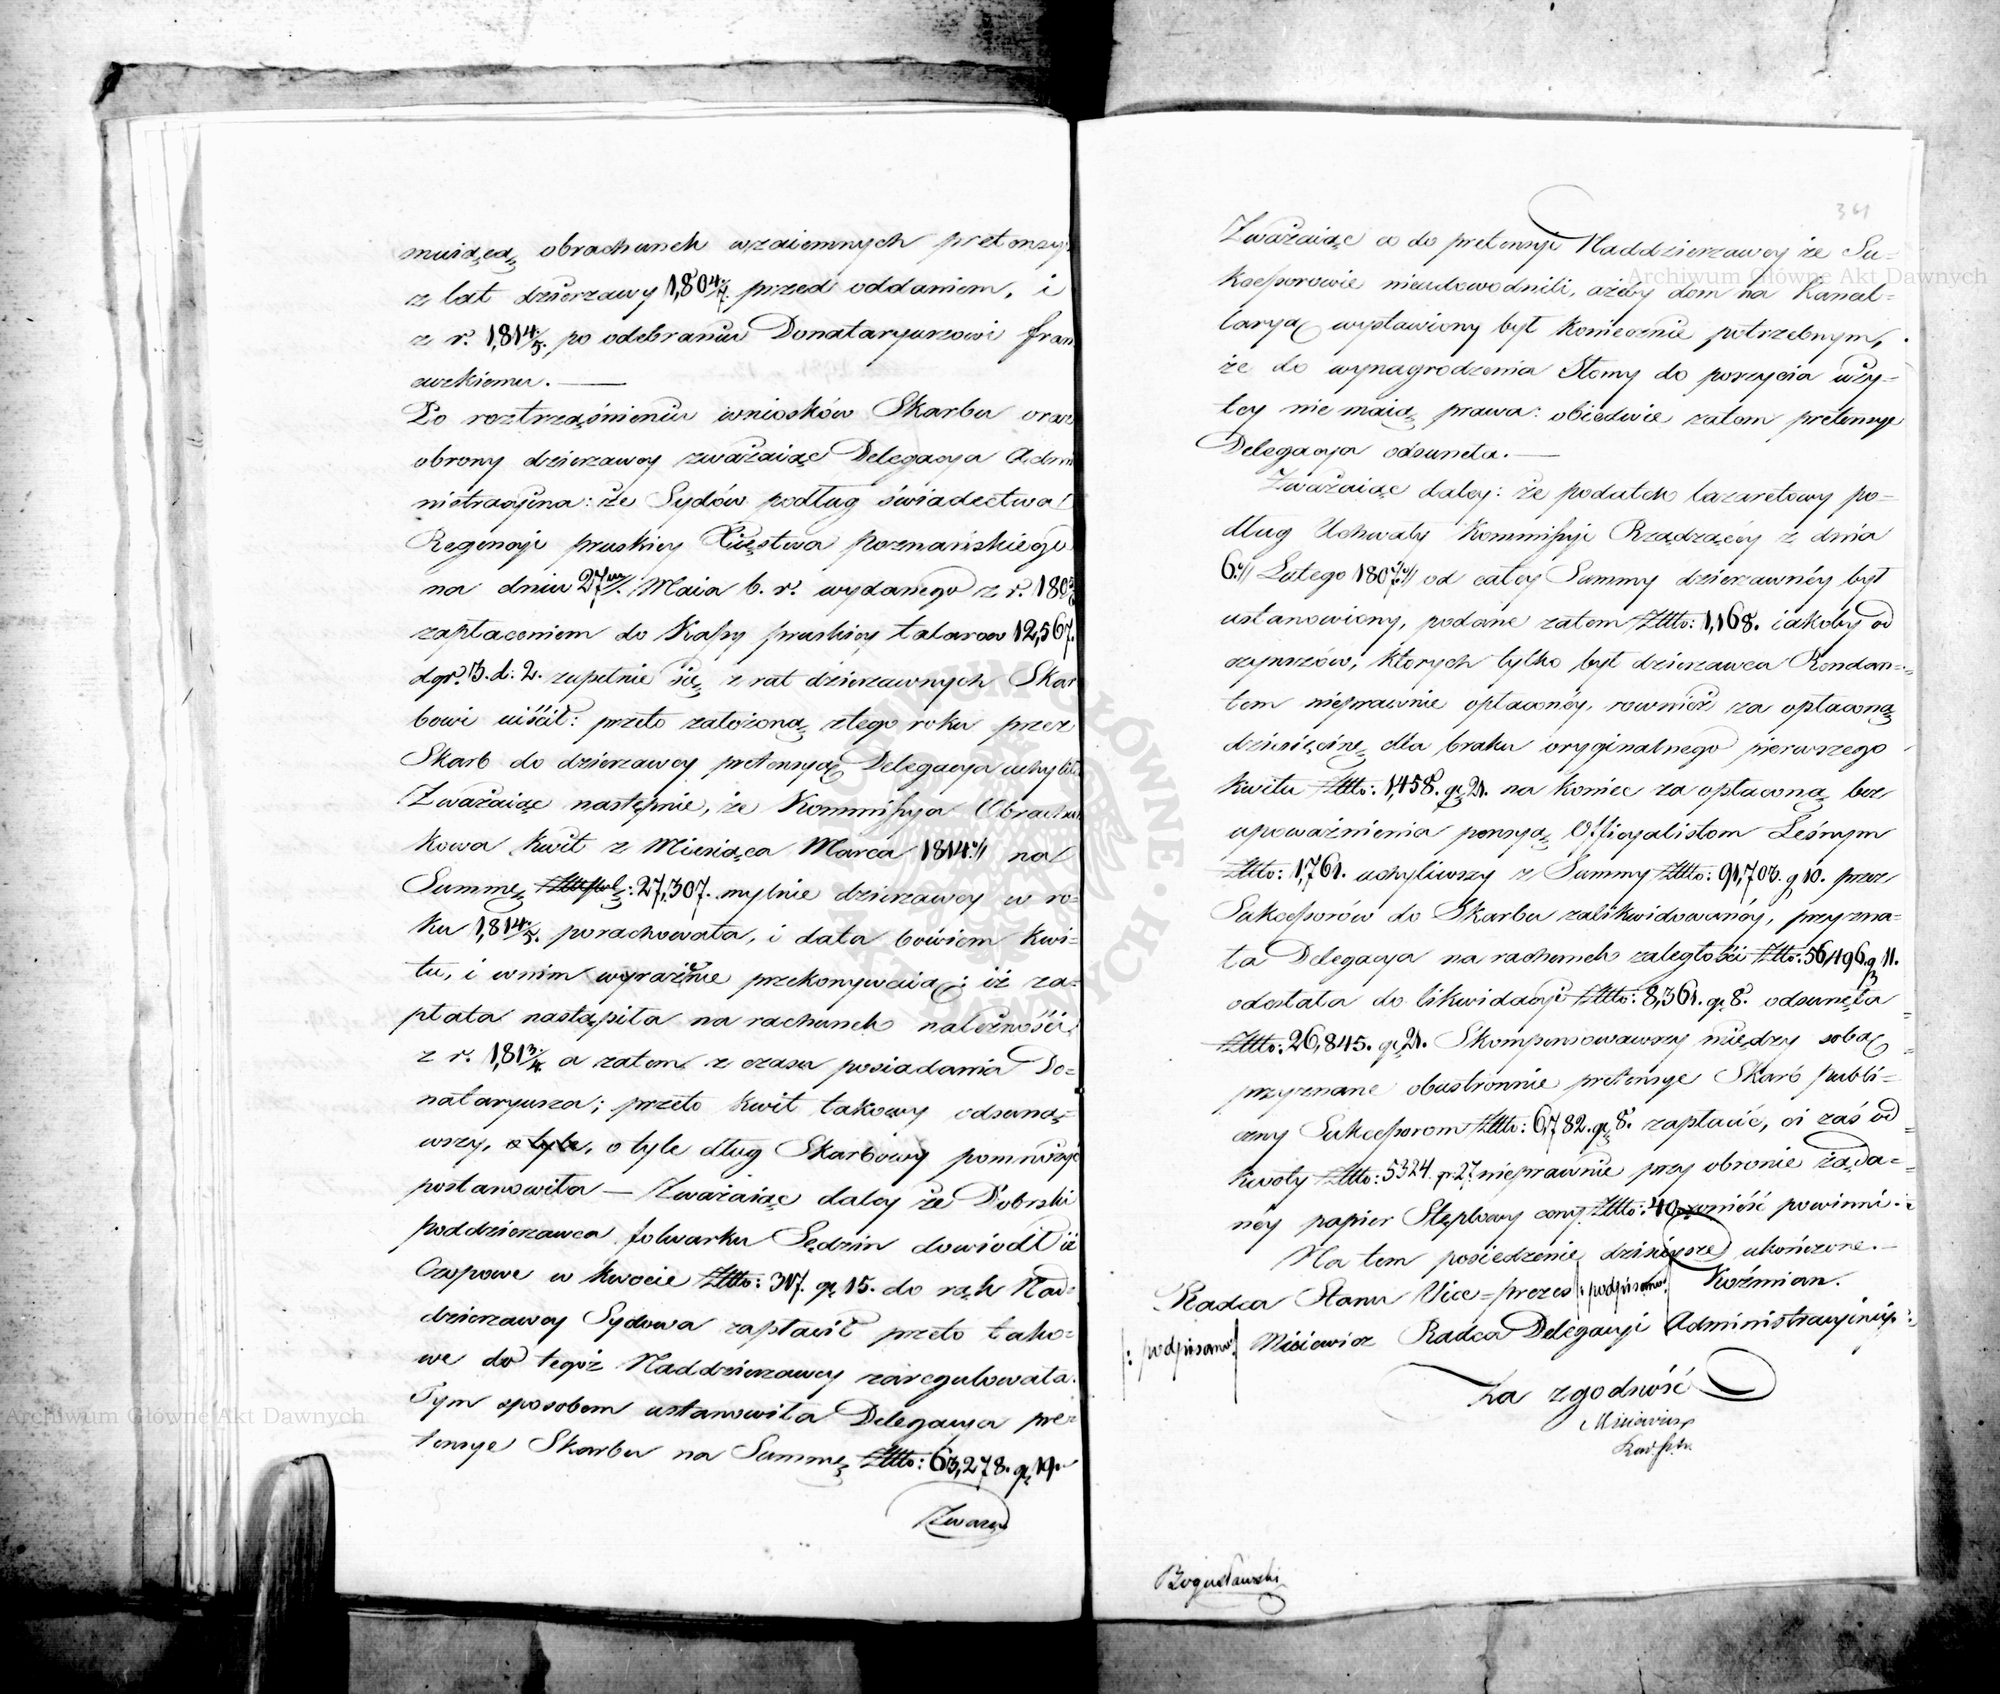 muiącą obrachunek wzaiemnych pretensyi
z lat dzierzawy 1,80 4/7. przed oddaniem, i
z r. 1,81 4/5. po odebraniu Donataryuszowi fran
cuzkiemu. —
Po roztrząśnieniu wniosków Skarbu oraz
obrony dzierzawcy zważaiąc Delegacya Admi
nistracyina: że Sydów podług świadectwa
Regencyi pruskiey Xięstwa Poznańskiego
na dniu 27m. Maia b. r. wydanego z r.
zapłaceniem do Kassy pruskiey talarow 12,567.
dgr. 3. d: 2. zupełnie się z rat dzierzawnych Skar
bowi uiścił: przeto założoną z tego roku przez
Skarb do dzierzawcy pretensyą Delegacya uchyliła
Zważaiąc następnie, że Kommissya Obrachun
kowa kwit z Miesiąca Marca 1814. na
Summę: 27,307. mylnie dzierzawcy w ro=
ku 1,81 4/5. porachowała, i data bowiem kwi=
tu, i w nim wyraźnie przekonywaią: iż za=
płata nastąpiła na rachunek należności
z r. 1,81 3/4 a zatem z czasu posiadania Do=
nataryusza; przeto kwit takowy odsuną=
wszy, o tyle, o tyle dług Skarbowy pomnożyć
postanowiła — Zważaiąc daley że Dobrski
poddzierzawca folwarku Sędzin dowiodł iż
Czopowe w kwocie Złtto: 317. gr. 15. do rąk Nad=
dzierzawcy Sydowa zapłacił przeto tako=
we do tegoż Naddzierzawcy zaregulowała.
Tym sposobem ustanowiła Delegacya pre=
tensye Skarbu na Summę Złtto: 63,278. gr. 19.
Zważa
34
Zważaiąc co do pretensyi Naddzierzawcy że Su=
kcessorowie nieudowodnili, ażeby dom na Kancel=
laryą wystawiony był koniecznie potrzebnym,
że do wynagrodzenia Słomy do poszycia uży=
tey nie maią prawa: obiedwie zatem pretensye
Delegacya odsuneła. —
Zważaiąc daley: że podatek lazaretowy po=
dług Uchwały Kommissyi Rządzącey z dnia
6. Lutego 1807. od całey Summy dzierzawnéy był
ustanowiony, podane zatem Złtto: 1,168. iakoby od
czynszów, których tylko był dzierzawca Rendan=
tem nieprawnie opłaconéy, rownież za opłaconą
dziesięcinę dla braku oryginalnego pierwszego
kwitu Złtto: 1,458. gr. 21. na koniec za opłaconą bez
upoważnienia pensyą Officyalistom Leśnym
Złtto: 1,761. uchyliwszy z Summy Złtto: 91,703. g 10. przez
Sukcessorów do Skarbu zalikwidowanéy, przyzna=
ła Delegacya na rachunek zaległości Złtto: 56,496. g 11.
odesłała do likwidacyi Złtto: 8,361. gr. 8. odsunęła
Złtto: 26,845. gr. 21. Skompensowawszy między sobą
przyznane obustronnie pretensye Skarb publi=
czny Sukcessorom Złtto: 6,782. gr. 8. zapłacić, ci zaś od
kwoty Złtto: 5324. gr. 27. nieprawnie przy obronie żąda=
néy papier Stęplowy ceny Złtto: 40. wnieść powinni.
Na tem posiedzenie dzisieysze ukończone. —
Radca Stanu Vice=prezes /: podpisano: / Koźmian.
/: podpisano: / Misiewicz Radca Delegacyi Administracyiney
Za zgodność
Misiewicz
Bogusławski
Archiwum Główne Akt Dawnych
Archiwum Główne Akt Dawnych